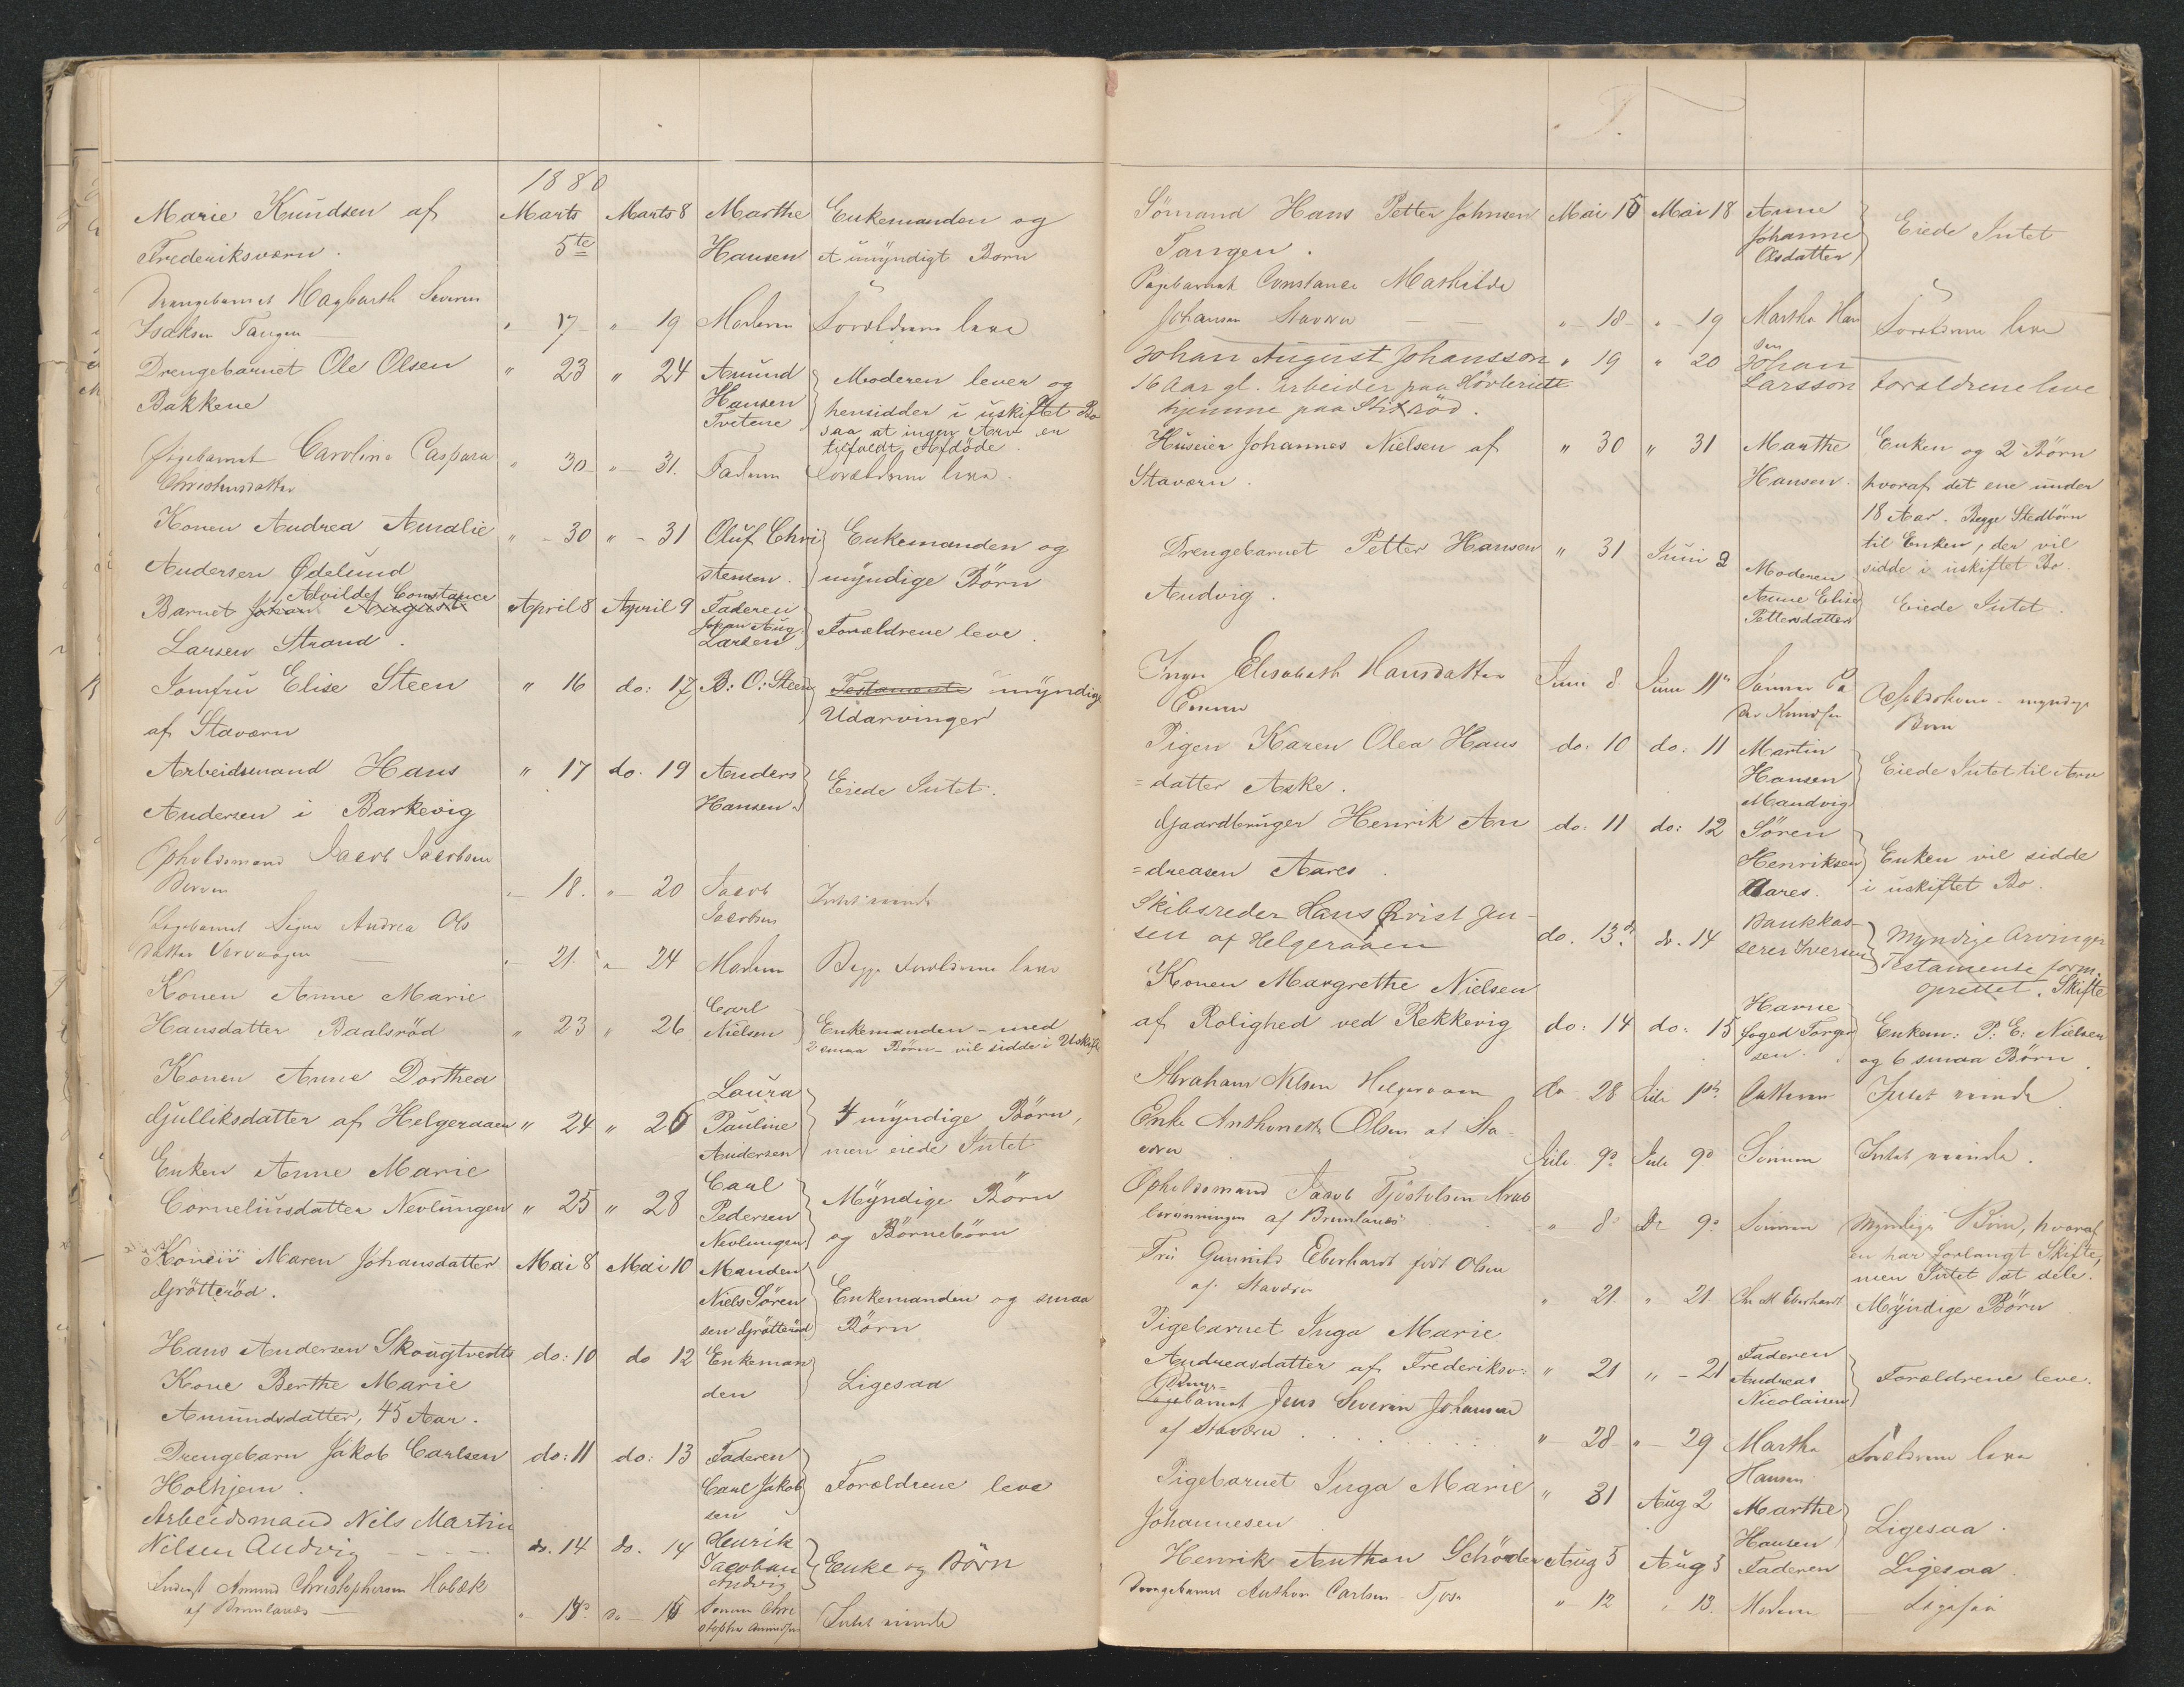 1880
Marie Knudsen af Marts Marts 8 Marthe Enkemanden og
Frederiksværn. 5te Hansen et umyndigt Barn
Drengebarnet Hagbarth Severin
Isaksen Tangen " 17 " 19 Moderen Forældrene leve
Drengebarnet Ole Olsen " 23 " 24 Amund Moderen lever og
Bakkene Hansen hensidder i uskiftet Bo
Tvetene saa at ingen Arv er
tilfaldt Afdöde.
Pigebarnet Caroline Caspara " 30 " 31. Faderen Forældrene leve.
Christensdatter
Konen Andrea Amalie " - 30 " - 31 Oluf Chri Enkemanden og
Andersen Ødelund stensen. myndige Börn
Alvilde Constance
Barnet Johan August April 8 April 9 Faderen
Larsen Strand. Johan Aug. Larsen Forældrene leve.
Jomfru Elise Steen " 16 do: 17 B: O: Steen Testamente myndige
af Staværn Udarvinger
Arbeidsmand Hans " 17 do. 19 Anders Eiede Intet.
Andersen i Barkevig Hansen.
Opholdsmand Jacob Jacobsen
" 18. " 20 Jacob
Jacobsen
Pigebarnet Signe Andrea Ols
datter Vervaagen " 21. " 24 Moderen Begge Forældrene leve
Konen Anne Marie Carl
Hansdatter Baalsröd " 23 " 26 Nielsen Enkemanden - med
2 smaa Börn - vil sidde i Uskifte
Konen Anne Dorthea Laura
Gulliksdatter af Helgeraaen " 24 " 26 Pauline 4 myndige Börn,
Andersen men eiede Intet
Enken Anne Marie Carl
Corneliusdatter Nevlungen " 25 " 28 Pedersen Myndige Börn
Nevlungen og Börnebörn
Konen Maren Johansdatter Mai 8 Mai 10 Manden
Grötteröd. Niels Sören Enkemanden og smaa
sen Grötteröd Börn
Hans Andersen Skougtvedts do: 10 do 12 Enkeman
Kone Berthe Marie den Ligesaa
Amundsdatter, 45 Aar.
Drengebarn Jakob Carlsen do: 11 do: 13 Faderen
Holhjem. Carl Jakob Forældrene leve
sen
Arbeidsmand Nils Martin
Nilsen Andvig do. 14 do. 14 Henrik
Jacobsen Enke og Börn
Andvig
Amund Christophersen Holæk
af Brunlanes Sönnen Chri
stopher Amundsen Intet
Sömand Hans Petter Johnsen Mai 15 Mai 18 Anne
Tangen. Johanne Eiede Intet
Olsdatter
Pigebarnet Constance Mathilde
Johansen Staværn " 18 " 19 Marthe Han Forældrene leve
sen
Johan August Johansson " 19 " 20 Johan
16 Aar gl. arbeider paa Hövleriet Larsson Forældrene leve
hjemme paa
Huseier Johannes Nielsen af " 30 " 31 Marthe Enken og 2 Börn
Staværn. Hansen. hvoraf det ene under
18 Aar. Begge Stedbörn
til Enken, der vil
sidde i uskiftet Bo.
Drengebarnet Petter Hansen " 31 Juni 2 Moderen
Andvig. Anne Elise Eiede Intet.
Pettersdatter
Inger Elisabeth Hansdatter Juni 8 Juni 11 Sönnen
myndige
Börn
Pigen Karen Olea Hans do: 10 do: 11 Martin
=datter Aske. Hansen Eiede Intet til Arv
Mandvig
Gaardbruger Henrik An do: 11 do: 12 Sören
=dreasen Aares. Henriksen Enken vil sidde
Aares. i uskiftet Bo.
Skibsreder Hans Christ Jen-
sen af Helgeraaen do. 13. do. 14 Bankkas-
serer Iversen Myndige Arvinger
Testamente form.
oprettet. Skifte
Konen Margrethe Nielsen Havne
af Rolighed ved Rekkevig do: 14 do: 15 foged Torger Enkem: P: E: Nielsen
sen. og 6 smaa Börn.
Abraham Nilsen Helgeraaen do 28 Juli 1 Datteren Intet
Enke Anthonette Olsen af Sta-
værn Juli 9 Juli 9 Sönnen Intet
Opholdsmand Jacob
af Brunlanes " 8 Do 9 Sönnen Myndige Börn, hvoraf
en har forlangt Skifte,
men Intet at dele.
Fru Gunnild Eberhardt född Olsen
af Staværn " 21 " 21 Chr. M Eberhardt Myndige Börn
Pigebarnet Inga Marie
Andreasdatter af Frederiksv: " 21 " - 21 Faderen
Andreas Forældrene leve.
Nicolaisen
Drengebarnet Jens Severin Johansen
af Staværn " 28 " - 29 Marthe Forældrene leve
Hansen
Pigebarnet Inga Marie " 31 Aug 2 Marthe
Johannesen Hansen Ligesaa.
Henrik Anthon Schöder Aug 5 Aug 5 Faderen Ligesaa.
Drengebarnet Anthon Carlsen " 12 " 13. Moderen Ligesaa